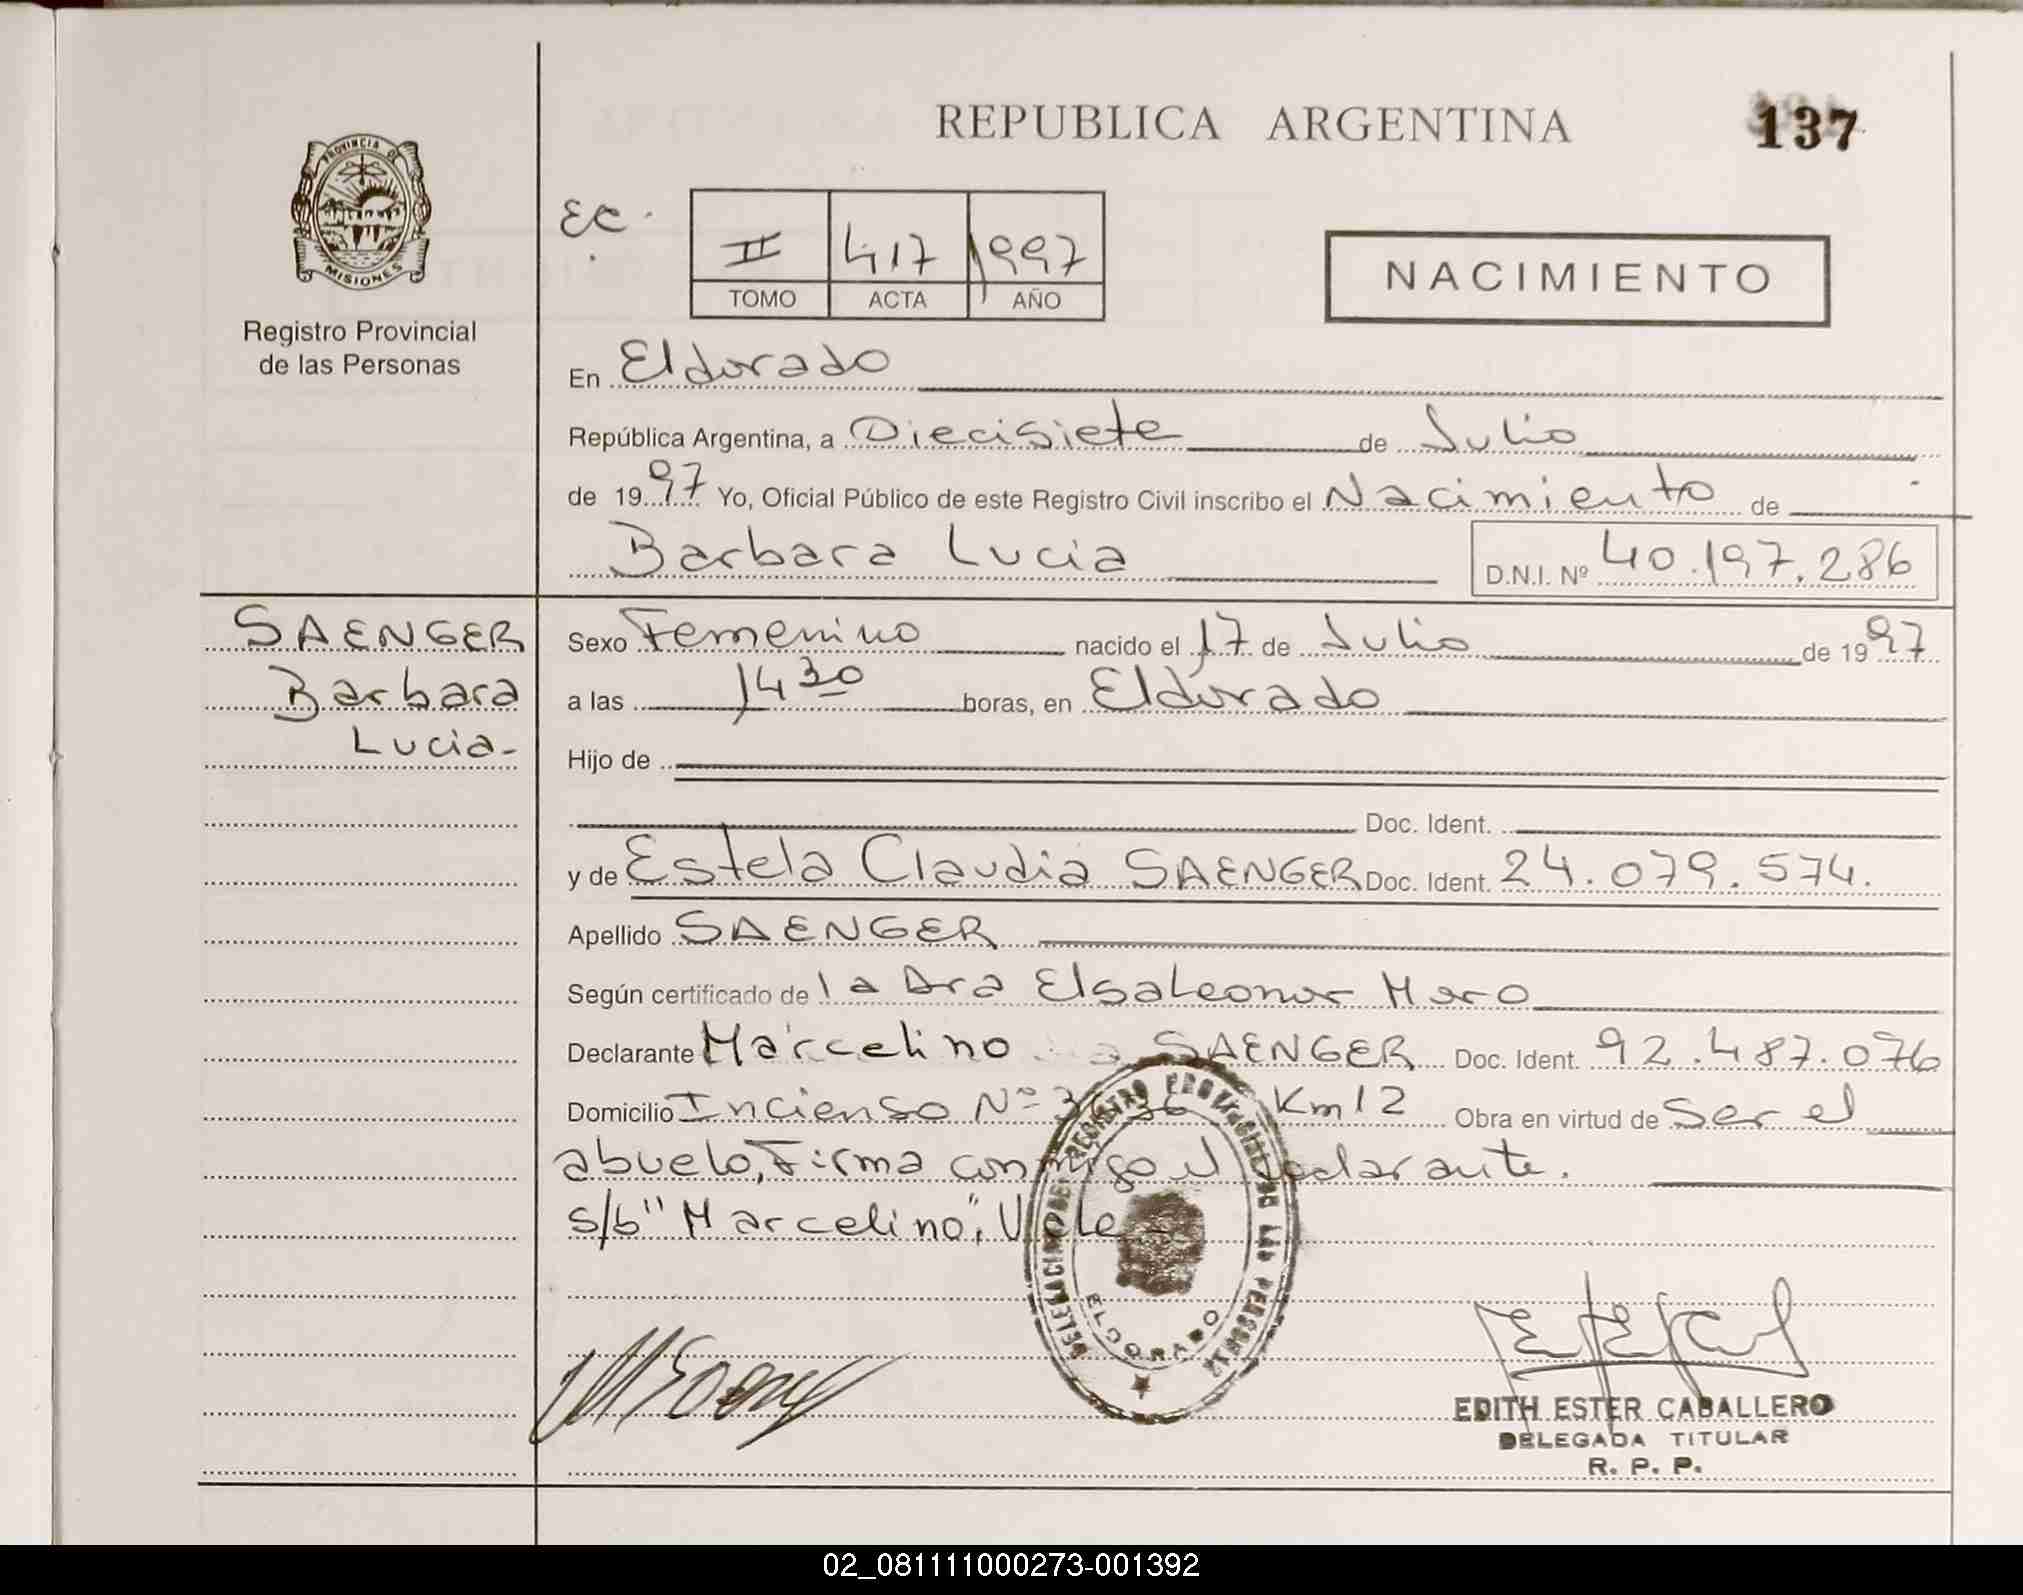 REPUBLICA ARGENTINA
137
PROVINCIA DE
MISIONES
Registro Provincial
de las Personas
EC.
II 417 1997
TOMO ACTA AÑO
NACIMIENTO
En Eldorado
República Argentina, a Diecisiete de Julio
de 1997 Yo, Oficial Público de este Registro Civil inscribo el Nacimiento de
Barbara Lucia D.N.I. Nº 40.197.286
SAENGER
Barbara
Lucia-
Sexo Femenino nacido el 17 de Julio de 1997
a las 14 30 horas, en Eldorado
Hijo de
Doc. Ident.
y de Estela Claudia SAENGER Doc. Ident. 24.079.574.
Apellido SAENGER
Según certificado de la Dra Elsa Leonor Mero
Declarante Marcelino SAENGER Doc. Ident. 92.487.076
Domicilio Incienso Nº Km 12 Obra en virtud de ser el
abuelo, Firma conmigo el declarante.
s/b "Marcelino", Vale
DELEGACION DEL REGISTRO PROVINCIAL DE LAS PERSONAS
ELDORADO
EDITH ESTER CABALLERO
DELEGADA TITULAR
R. P. P.
02_081111000273-001392